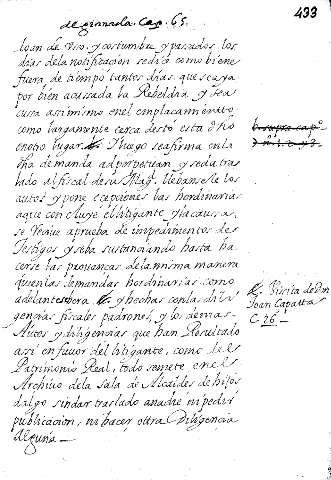 de granada. Cap. 65.
433
loan de Vso. y costumbre y passados los
dias de la notificacion se dice como biene
fuera de tiempo tantos dias. que se aya
por bien acussada la Rebeldia y sea
cussa asimismo en el emplacamiento
como largamente cerca desto esta dho
en otro lugar. luego se afirma en la
dha demanda ad perpetuan y se da tras
lado al fiscal de su Magd. lleban se le los
autos y pone ecepciones las hordinarias
a que concluye el litigante y la caussa
se Reciue a prueba de impedimentos de
testigos y se ba sustanciando hasta ha
cerse las probanças de la misma manera
que en las demandas hordinarias como
adelante sera. y hechas con las dili
gencias fiscales padrones, y los demas
Autos y diligencias que han Resultado
asi en fauor del litigante, como del
Patrimonio Real, todo se mete en el
Archivo de la Sala de Alcaldes de hijos
dalgo sin dar traslado a nadie ni pedir
publicacion, ni hacer otra Diligencia
Alguna
supra cap.
Visita de Don
Joan Capatta
C. 26